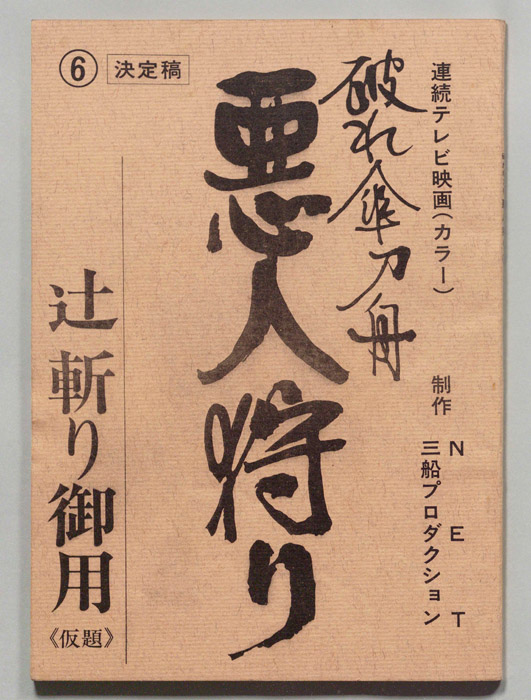 連続テレビ映画(カラー)
制作 NET
三船プロダクション
破れ傘刀舟
悪人狩り
⑥ 決定稿
辻斬り御用《仮題》